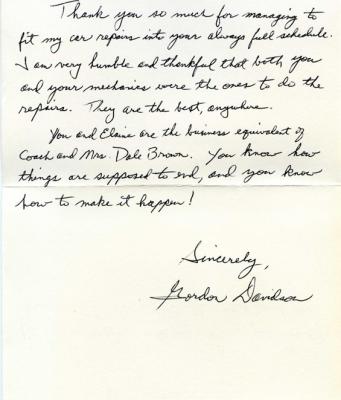 Thank you so much for managing to
fit my car repairs into your always full schedule.
I am very humble and thankful that both you
and your mechanics were the ones to do the
repairs. They are the best, anywhere.
You and Elaine are the business equivalent of
Coach and Mrs. Dale Brown. You know how
things are supposed to end, and you know
how to make it happen!
Sincerely,
Gordon Davidson